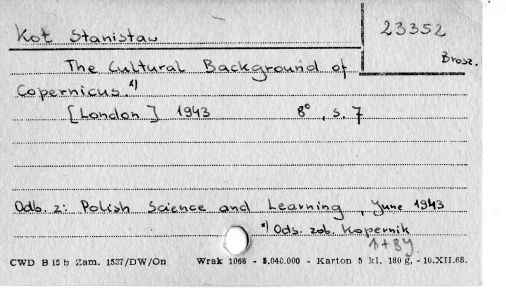 Kot Stanisław
23352
Brosz.
The Cultural Background of
Copernicus. *)
[London] 1943 8°, s. 7
Odb. z: Polish Science and Learning, June 1943
*) Ods. zob. Kopernik
CWD B 15 b Zam. 1537/DW/On Wrak 1068 - 5.040.000 - Karton 5 kl. 180 g, - 10.XII.68.